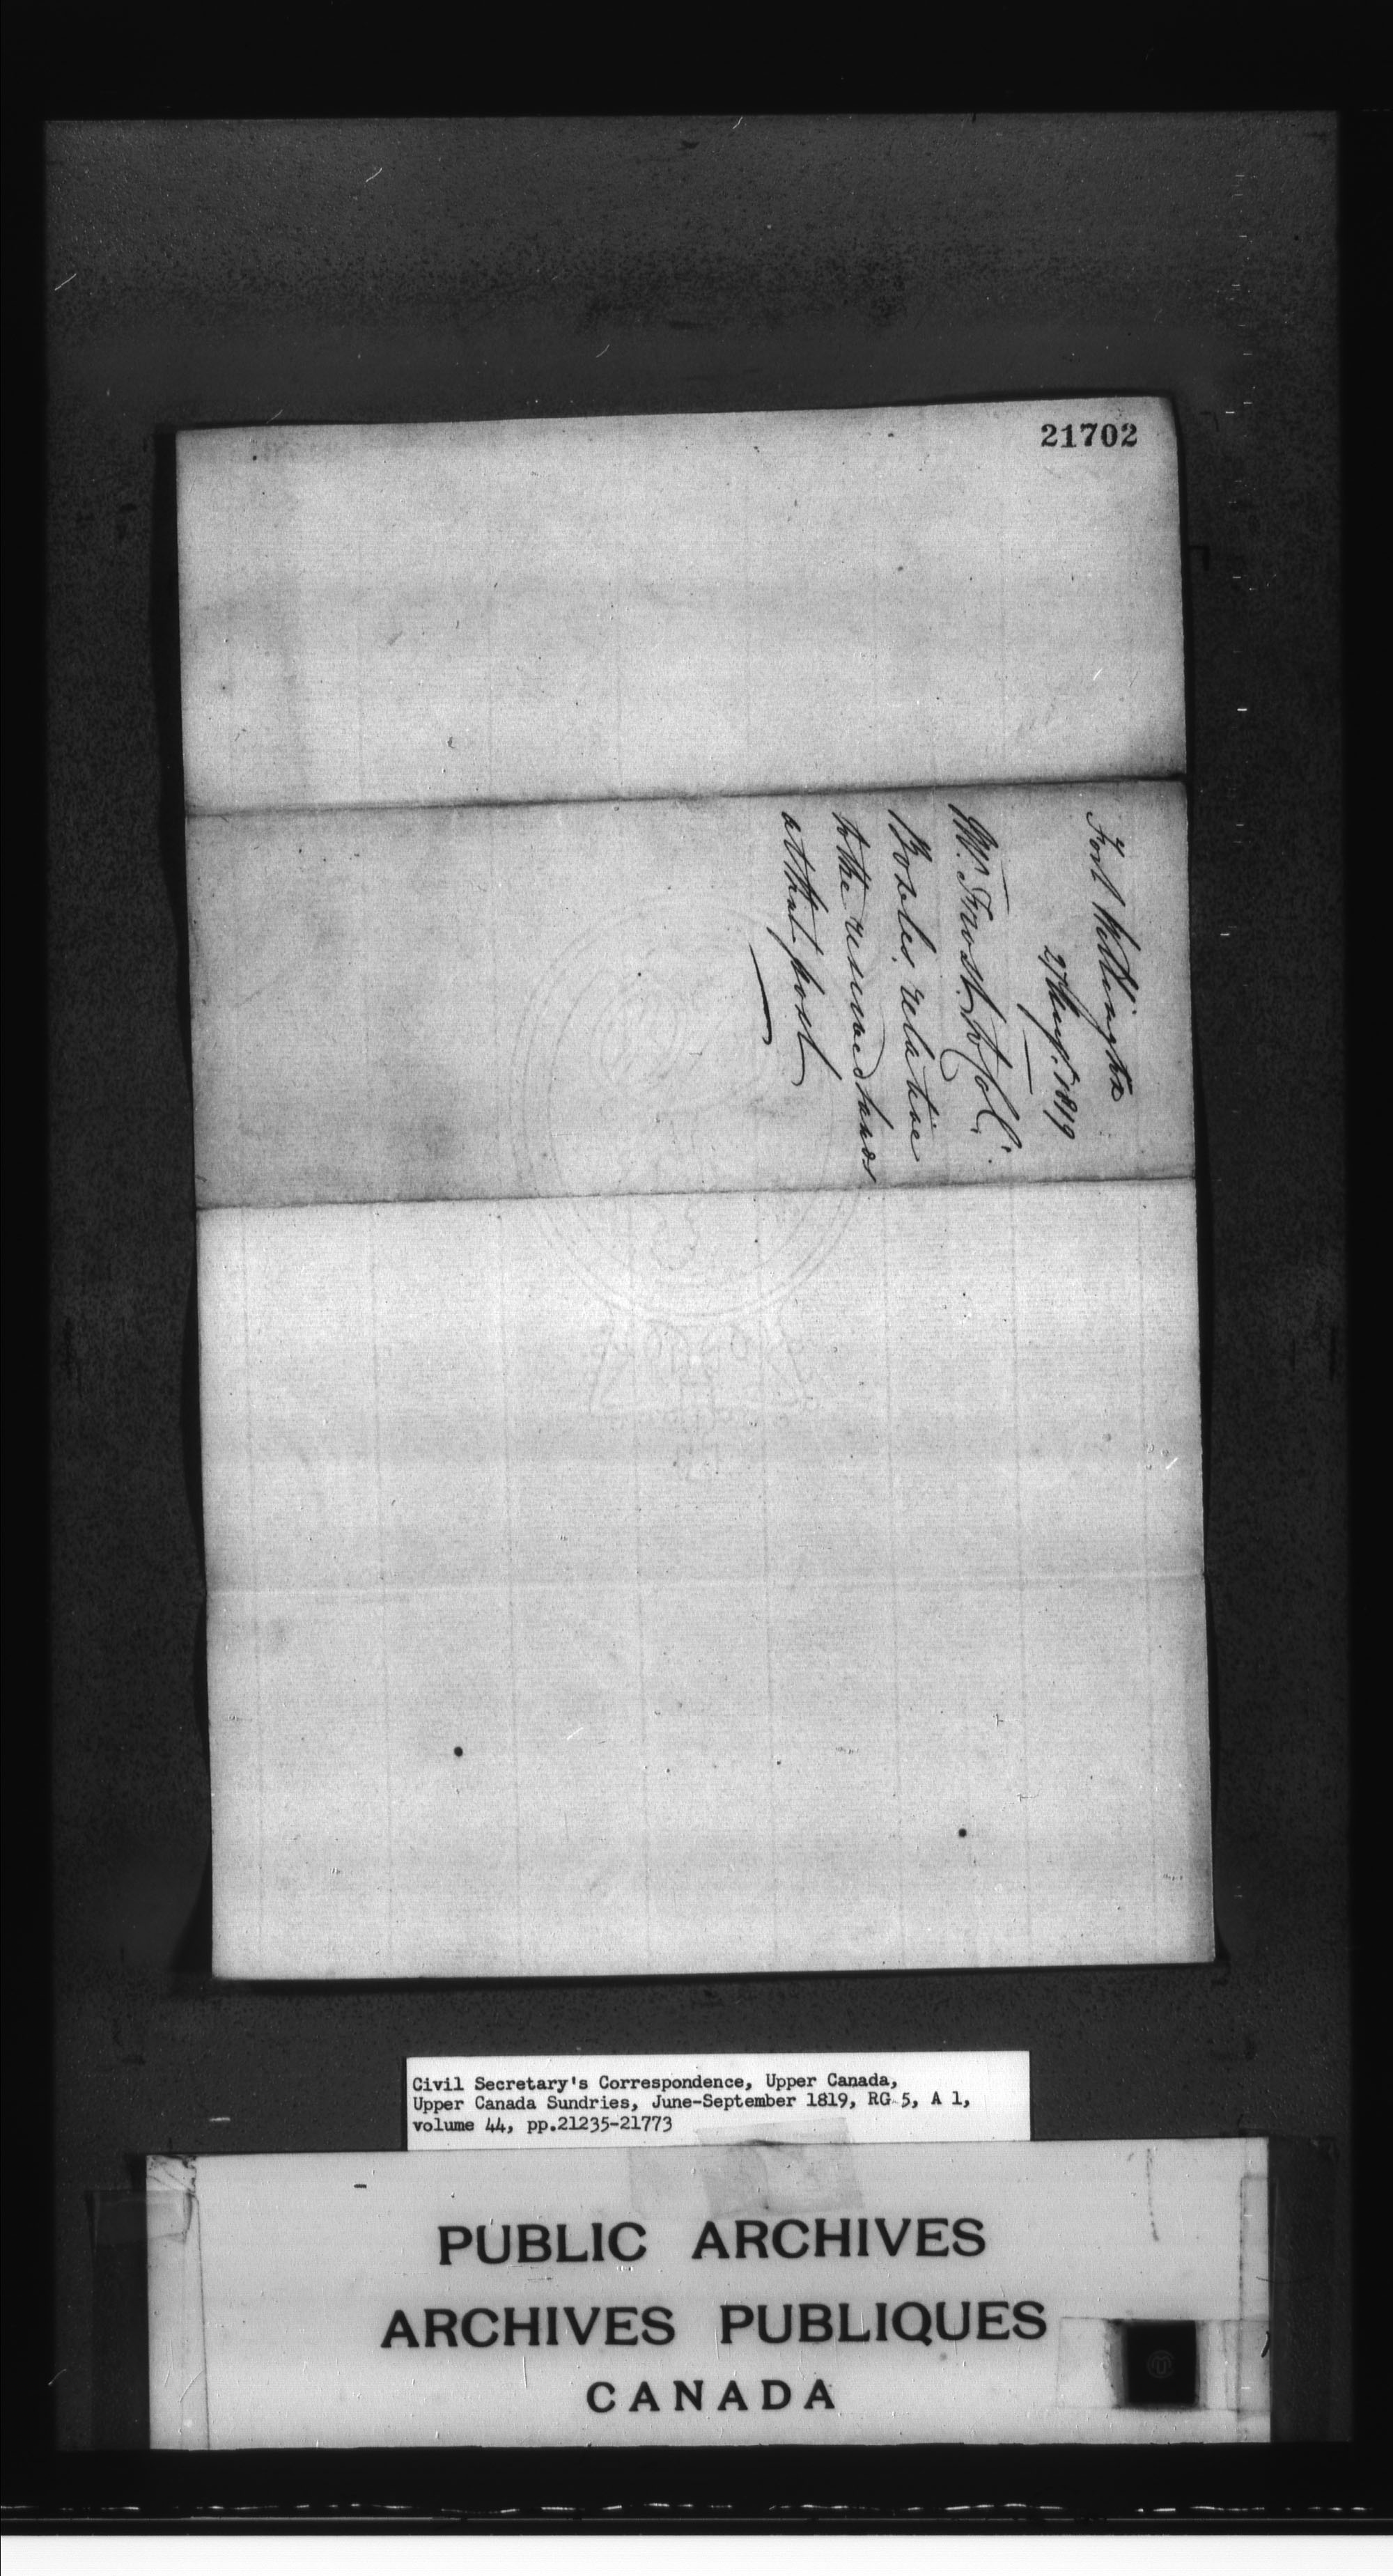 21702
Fort Wellington
27 Augt. 1819
Mr. Frost to Col.
Bowles, relative
to the reserved lands
at that post
Civil Secretary's Correspondence, Upper Canada,
Upper Canada Sundries, June-September 1819, RG 5, A 1,
volume 44, pp.21235-21773
PUBLIC ARCHIVES
ARCHIVES PUBLIQUES
CANADA